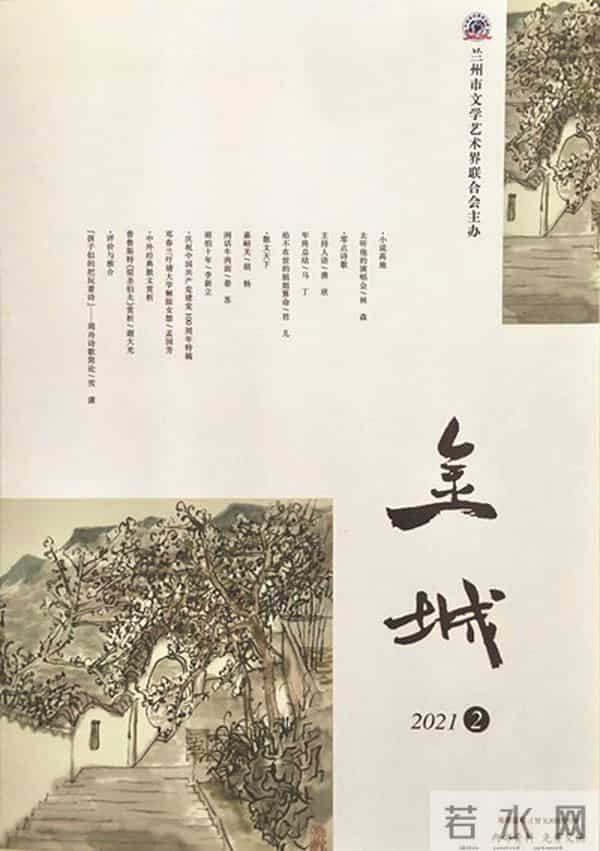 兰州市文学艺术界联合会主办
·小说高地
去听他的演唱会/林 森
·零点诗歌
主持人语/唐 欣
年终总结/马 丁
给不在世的姐姐算命/君 儿
·散文天下
嘉峪关/胡 杨
闲话牛肉面/秦 苏
琐拍十年/李新立
·庆祝中国共产党建党100周年特稿
邓春兰:吁请大学解除女禁/孟国芳
·中外经典散文赏析
普鲁斯特《驳圣伯夫》赏析/谢大光
·评价与推介
“孩子似的把玩着诗”——周舟诗歌简论/雪 潇
金城
2021 2
若水网